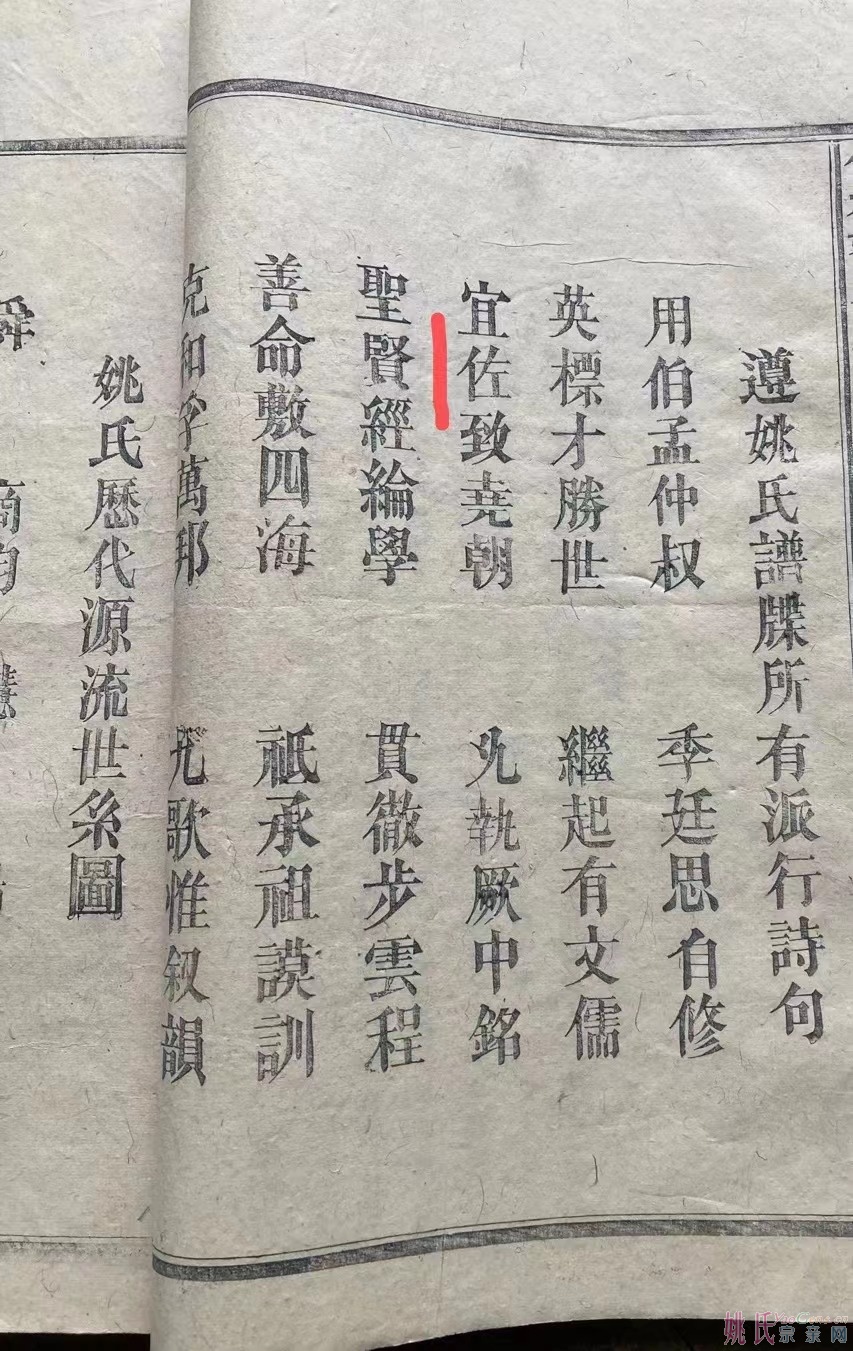 遵姚氏譜牒所有派行詩句
用伯孟仲叔 季廷思自修
英標才勝世 繼起有文儒
宜佐致堯朝 允執厥中銘
聖賢經綸學 貫徹步雲程
善命敷四海 祇承祖謨訓
克和孚萬邦 九歌惟叙韻
姚氏歷代源流世系圖
舜 商均
姚氏宗亲网